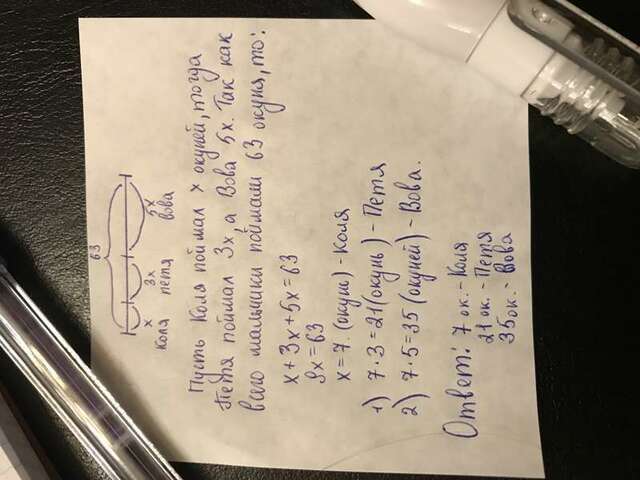 63
x 3x 5x
Коля Петя Вова
Пусть Коля поймал x окуней, тогда
Петя поймал 3x, а Вова 5x. Так как
всего мальчики поймали 63 окуня, то:
x + 3x + 5x = 63
9x = 63
x = 7. (окунь) - Коля
1) 7 · 3 = 21 (окунь) - Петя
2) 7 · 5 = 35 (окуней) - Вова.
Ответ: 7 ок. - Коля
21 ок. - Петя
35 ок. - Вова